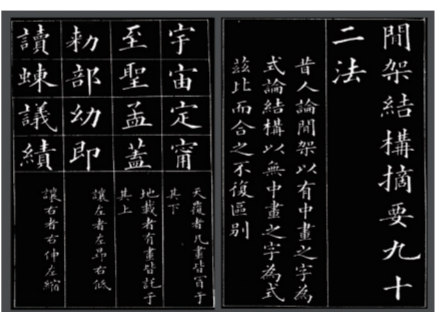 間架結構摘要九十
二法
昔人論間架以有中畫之字為
式論結構以無中畫之字為式
茲比而合之不復區別
宇宙定甯
天覆者凡畫皆冒于
其下
至聖孟蓋
地載者有畫皆託于
其上
勑部幼即
讓左者左昂右低
讀蝀議績
讓右者右伸左縮